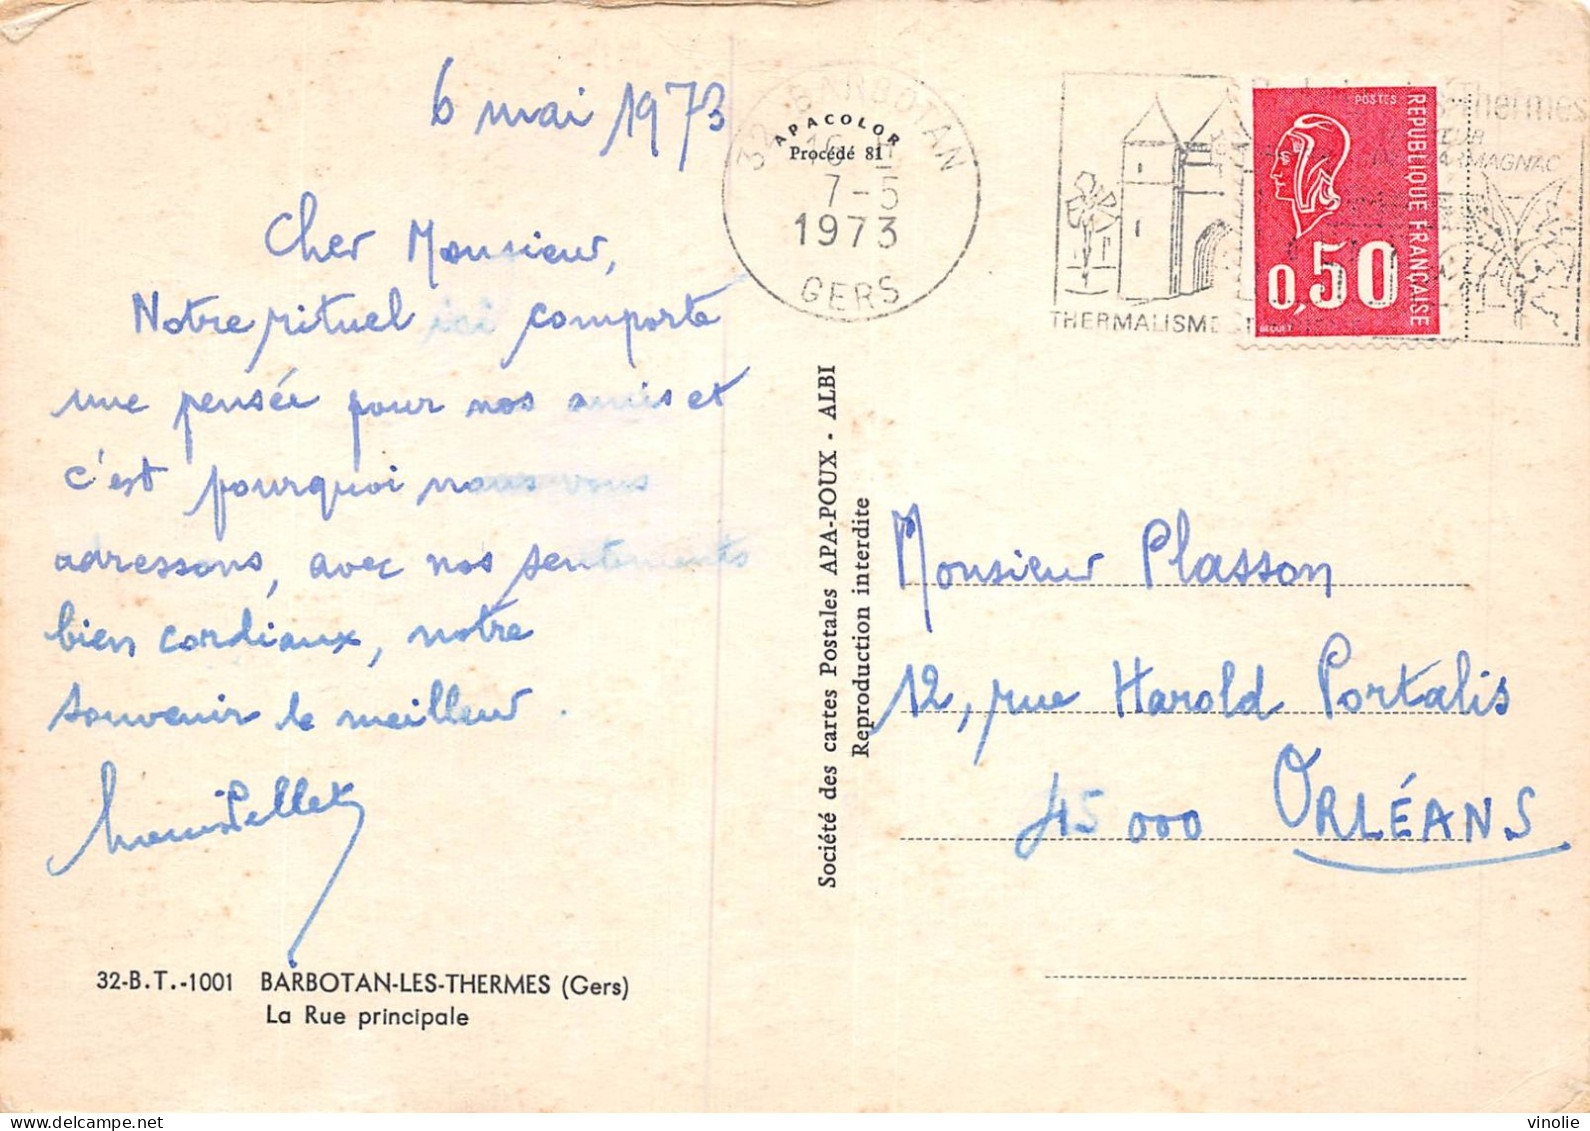 6 mai 1973
Cher Monsieur,
Notre rituel ici comporte
une pensée pour nos amis et
c'est pourquoi nous vous
adressons, avec nos sentiments
bien cordiaux, notre
souvenir le meilleur.
32-B.T.-1001 BARBOTAN-LES-THERMES (Gers)
La Rue principale
APACOLOR
Procédé 81
32 BARBOTAN
16 H
7-5
1973
GERS
THERMALISME
-Thermes
ARMAGNAC
POSTES
REPUBLIQUE FRANÇAISE
0,50
BEQUET
Société des cartes Postales APA-POUX - ALBI
Reproduction interdite
Monsieur Plasson
12, rue Harold Portalis
45000 ORLÉANS
vinolie